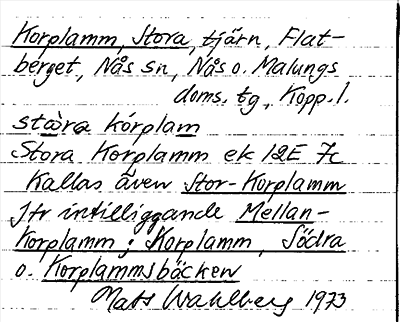 Korplamm, Stora, tjärn, Flat-
berget, Nås sn, Nås o. Malungs
doms. tg, Kopp. l.
stòra kórplam
Stora Korplamm ek 12E 7c
Kallas även Stor-Korplamm
Jfr intilliggande Mellan-
Korplamm; Korplamm, Södra
o. Korplammsbäcken
Mats Wahlberg 1973